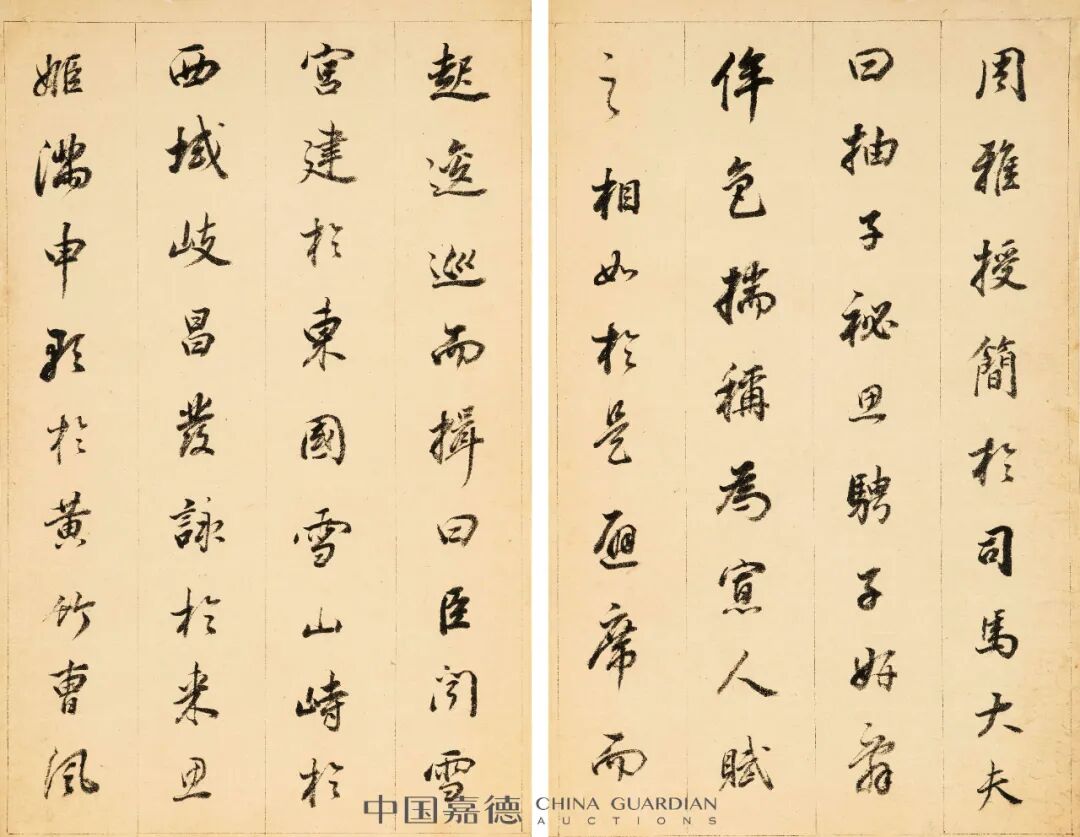 周雅授簡於司馬大夫
曰抽子祕思騁子妍辭
侔色揣稱為寡人賦
之相如於是避席而
起逡巡而揖曰臣聞雪
宮建於東國雪山峙於
西域岐昌發詠於来思
姬滿申歌於黄竹曹風
中国嘉德 CHINA GUARDIAN AUCTIONS